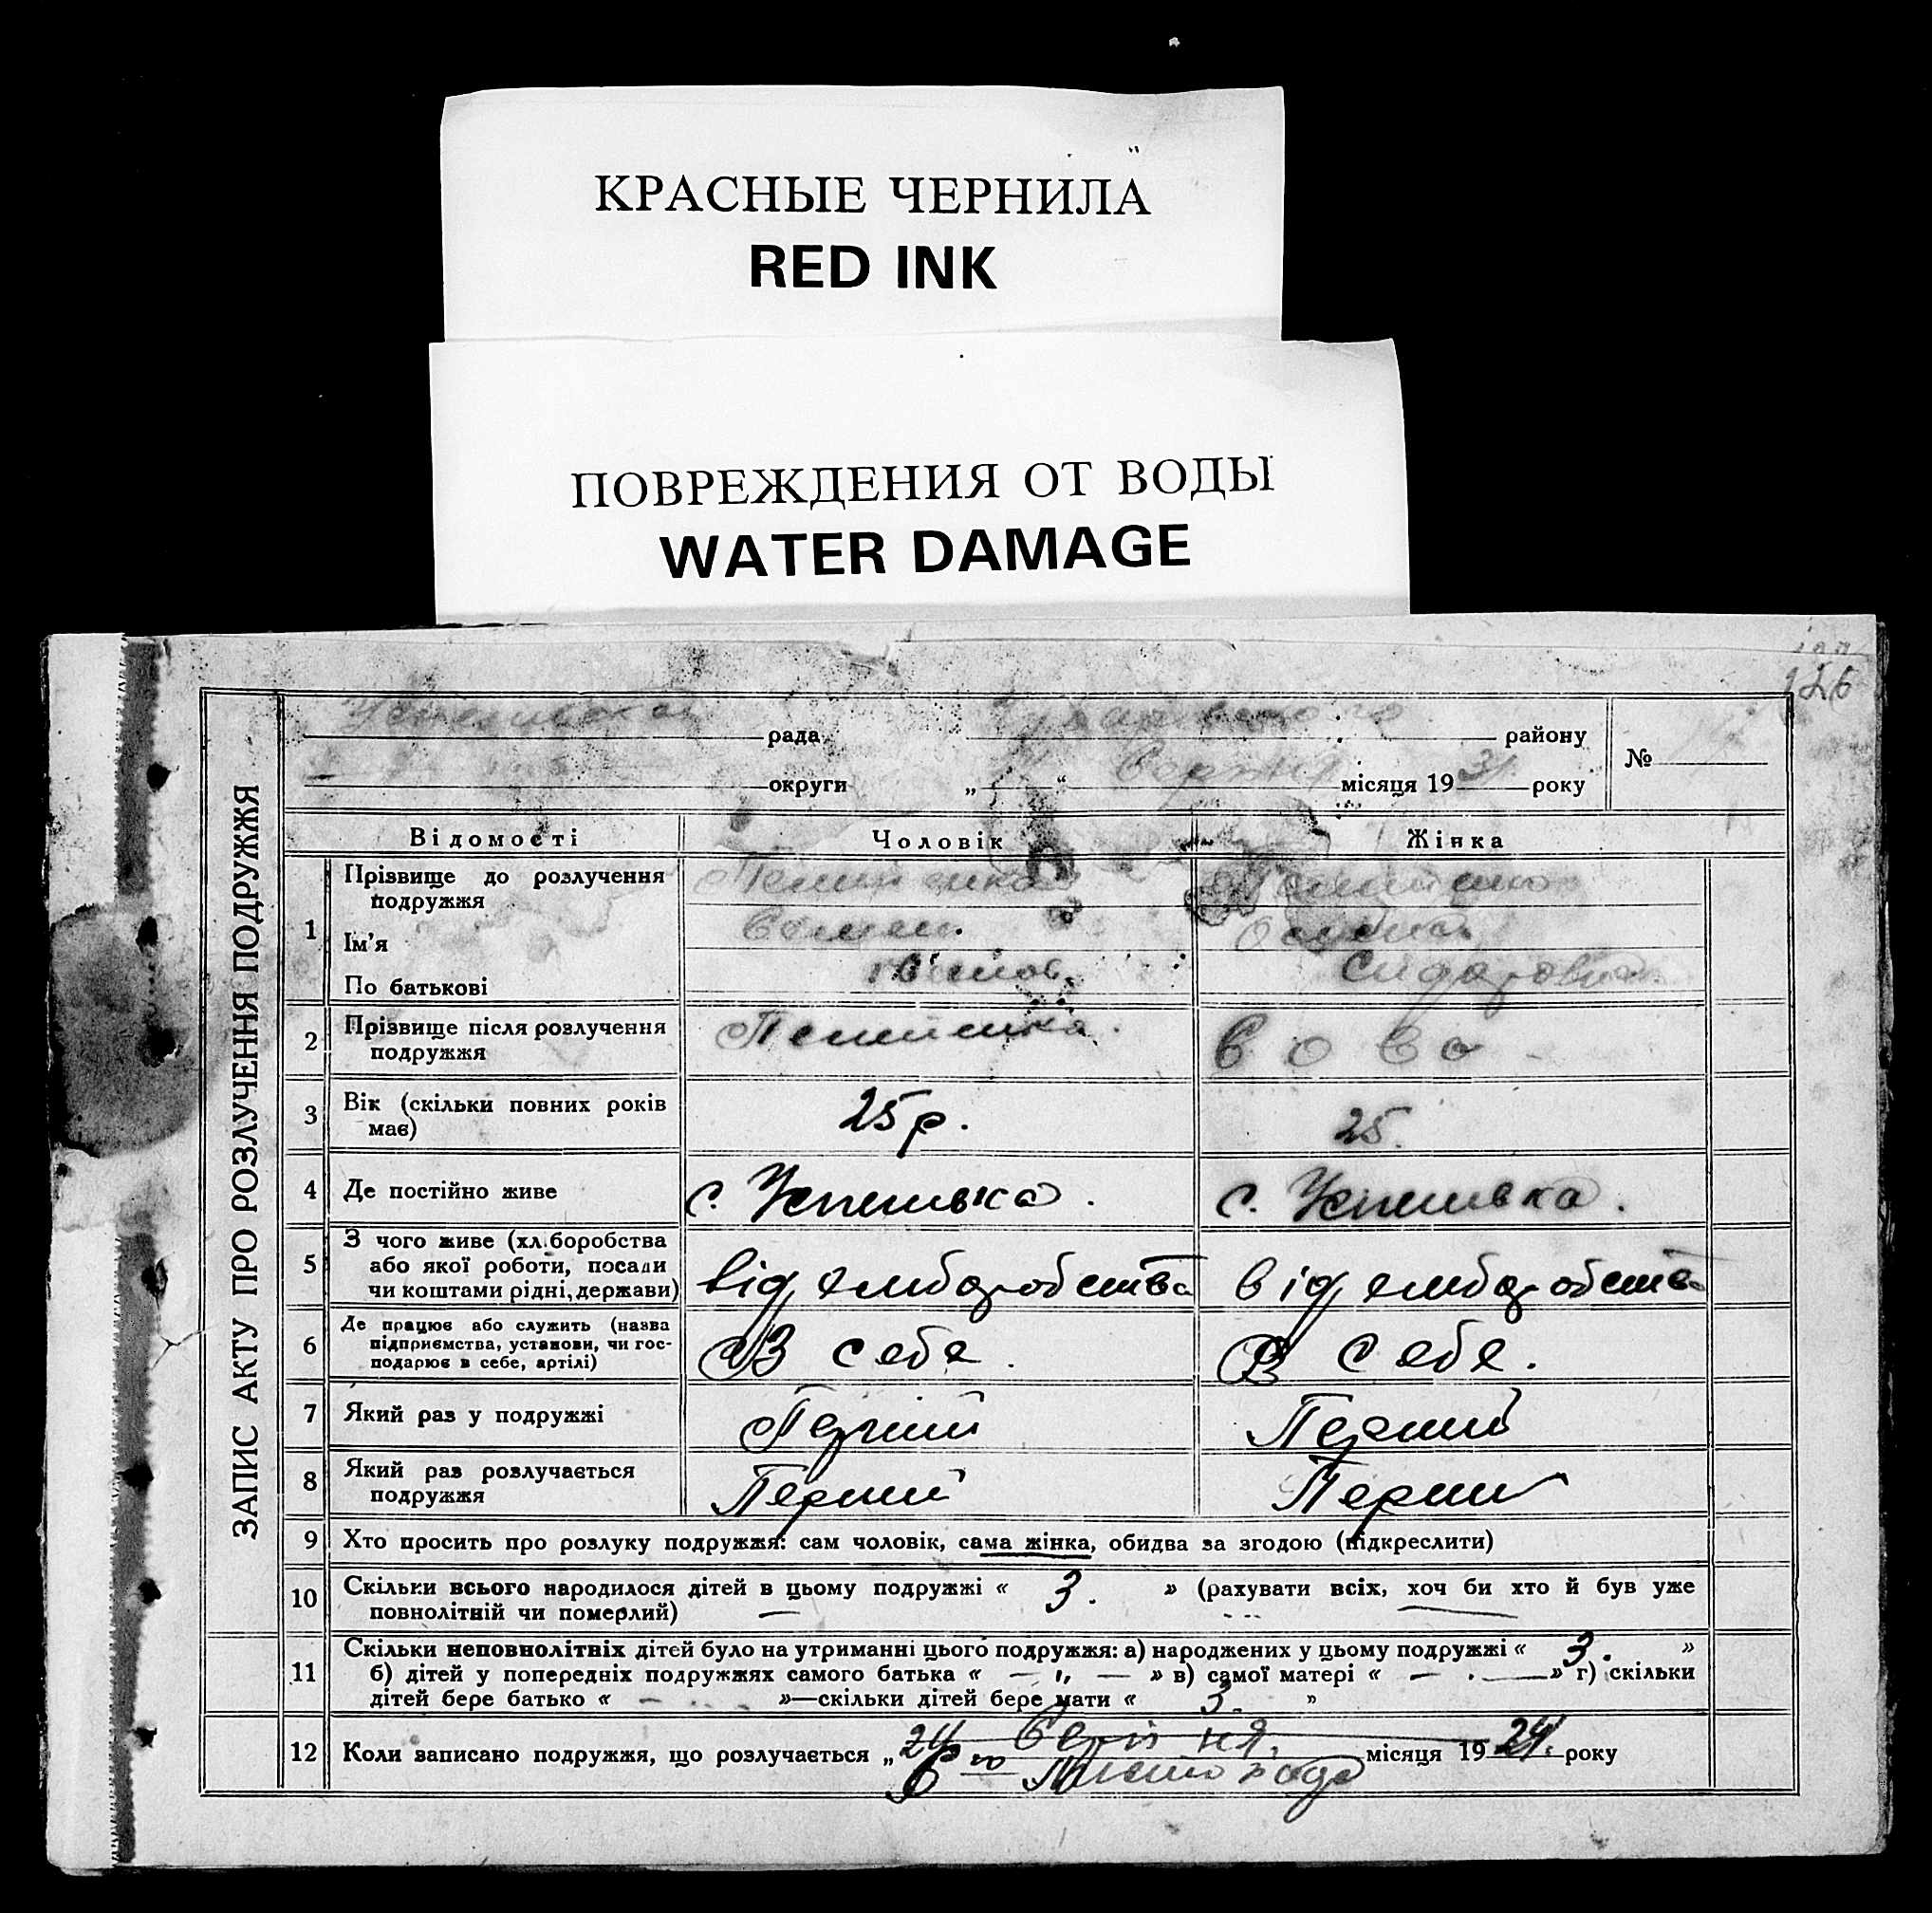 КРАСНЫЕ ЧЕРНИЛА
RED INK
ПОВРЕЖДЕНИЯ ОТ ВОДЫ
WATER DAMAGE
126
ЗАПИС АКТУ ПРО РОЗЛУЧЕННЯ ПОДРУЖЖЯ
рада району
№
округи „ “ Серпня місяця 1931 року
Відомості Чоловік Жінка
1 Прізвище до розлучення
подружжя
Ім'я
По батькові Сидоровна
2 Прізвище після розлучення
подружжя
3 Вік (скільки повних років 25 р. 25.
має)
4 Де постійно живе с. Успенівка. с. Успенівка.
5 З чого живе (хліборобства
або якої роботи, посади від хліборобства від хліборобства
чи коштами рідні, держави)
6 Де працює або служить (назва
підприємства, установи, чи гос- В себе. В себе.
подарює в себе, артілі)
7 Який раз у подружжі Перший Перший
8 Який раз розлучається Перший Перший
подружжя
9 Хто просить про розлуку подружжя: сам чоловік, сама жінка, обидва за згодою (підкреслити)
10 Скільки всього народилося дітей в цьому подружжі « 3. » (рахувати всіх, хоч би хто й був уже
повнолітній чи померлий)
11 Скільки неповнолітніх дітей було на утриманні цього подружжя: а) народжених у цьому подружжі « 3. »
б) дітей у попередніх подружжях самого батька « — „ — » в) самої матері « — . — » г) скільки
дітей бере батько « — »—скільки дітей бере мати « 3. »
12 Коли записано подружжя, що розлучається „ 24 Серпня. місяця 1924. року
6 го Листопада